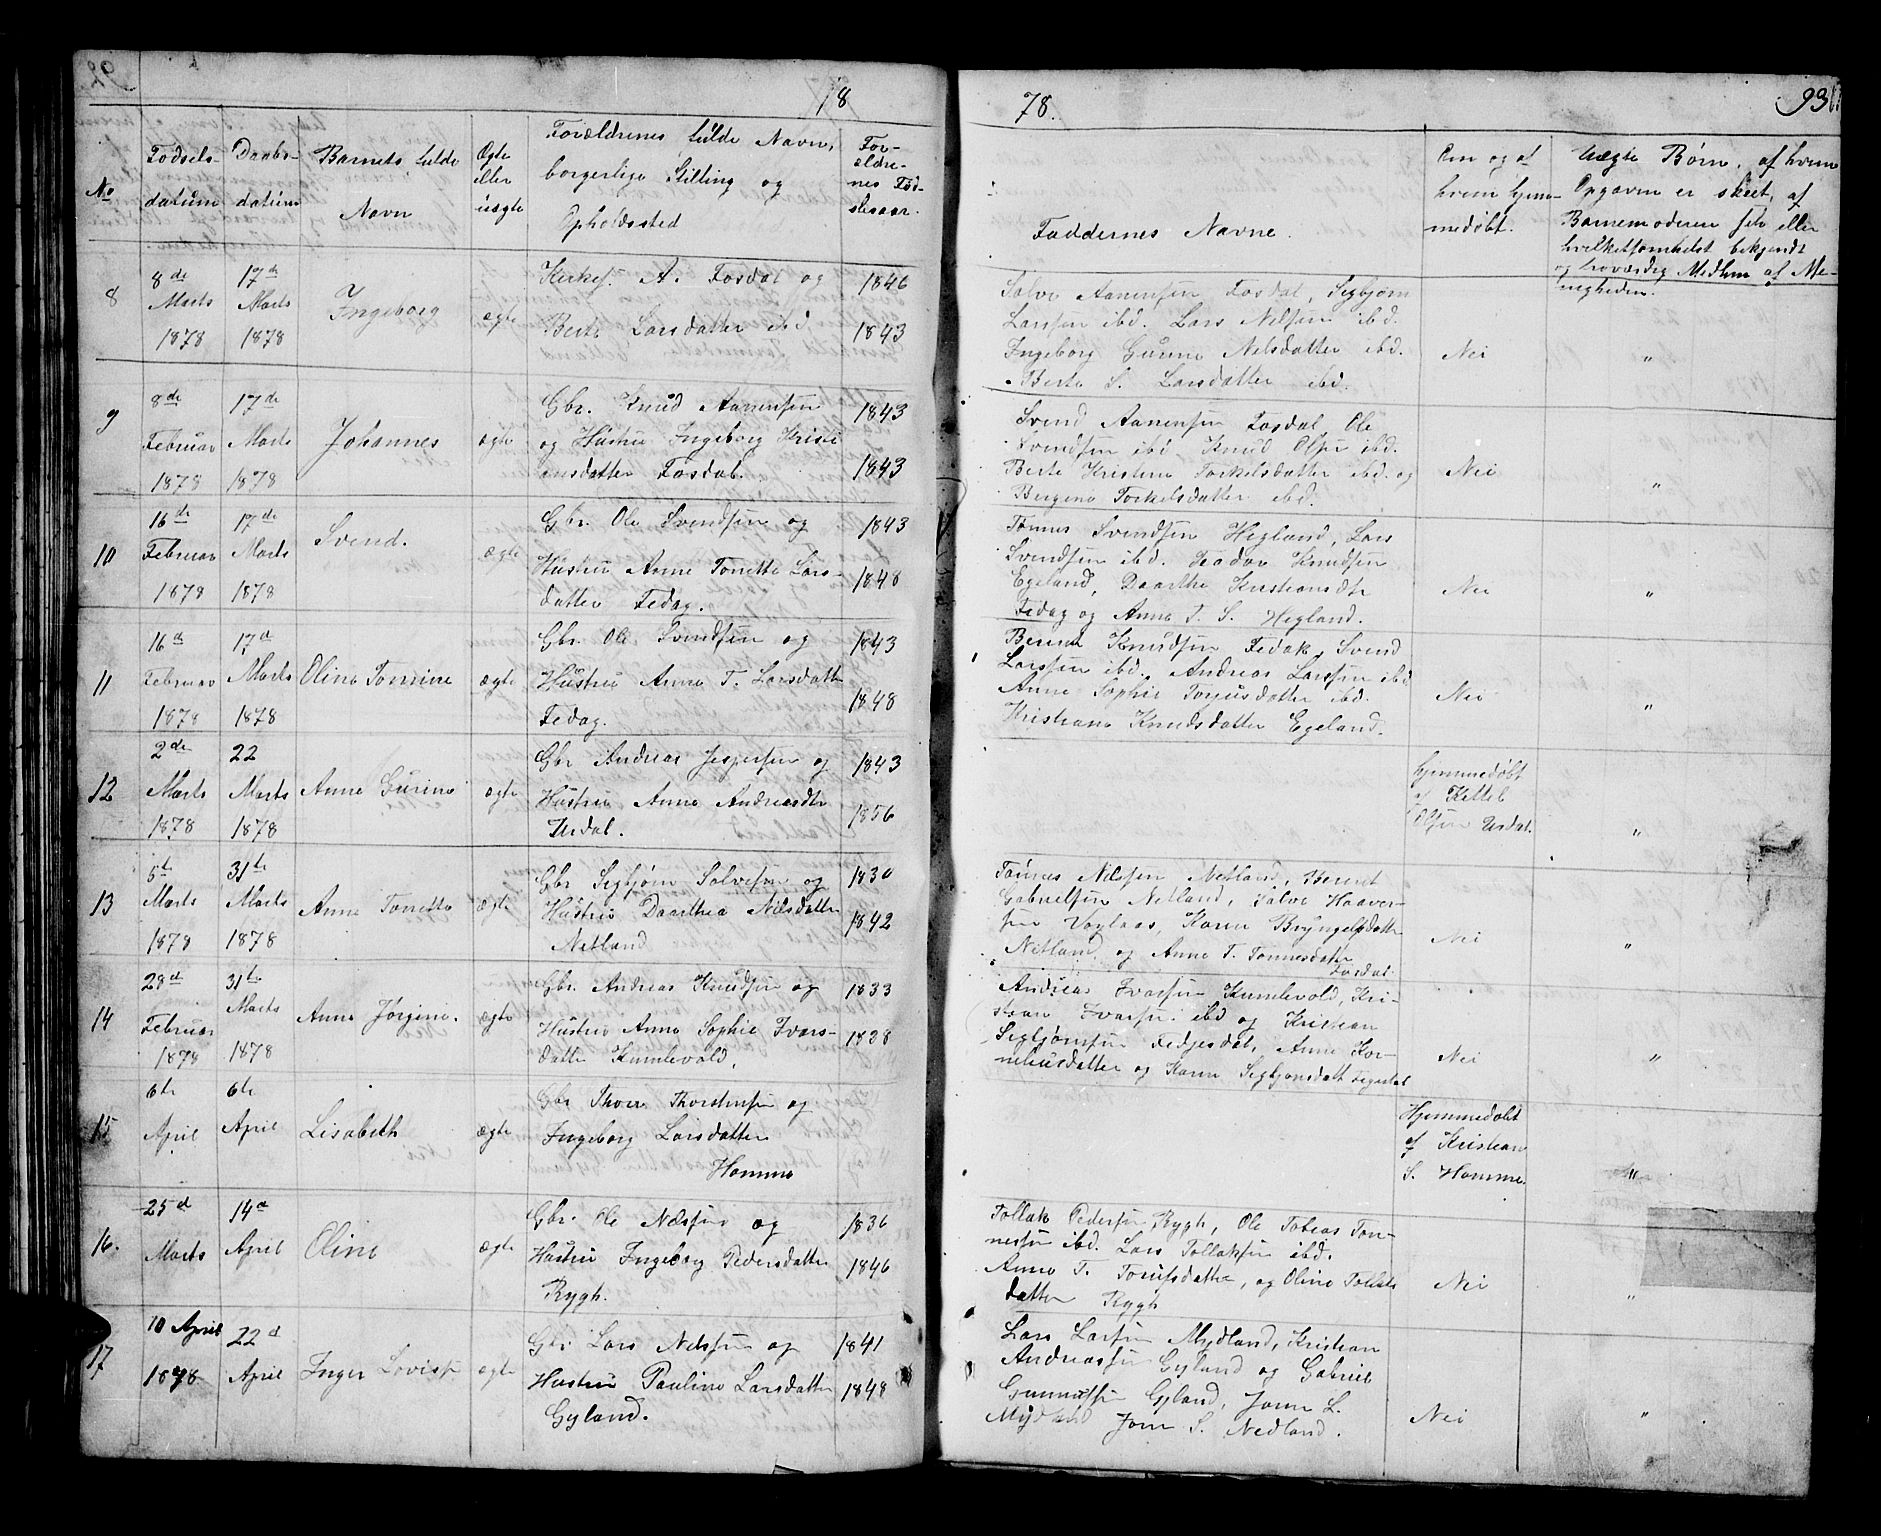 18
78.
93
No
Fødsels-
datum
Daabs-
datum
Barnets fulde
Navn
Ægte
eller
uægte
Forældrenes fulde Navn,
borgerlige Stilling og
Opholdssted
For-
ældre-
nes Fød-
selsaar.
Faddernes Navne.
Om og af
hvem hjem-
medøbt.
Uægte Børn, af hvem
Opgaven er skeet, af
Barnemoderen selv eller
hvilketsomhelst bekjendt
og troværdig Medlem af Me-
nigheden.
8
8de
Marts
1878
17de
Marts
1878
Ingeborg
ægte
Kirkes. A. Fosdal og
Berte Larsdatter ibd
1846
1843
Salve Aanensen Fosdal, Sigbjørn
Larssen ibd. Lars Nilsen ibd.
Ingeborg Gurine Nelsdatter ibd.
Berte S. Larsdatter ibd.
Nei
"
9
8de
Februar
1878
17de
Marts
1878
Johannes
ægte
Gbr. Knud Aanensen
og Hustru Ingeborg Kristi
ansdatter Fosdal.
1843
1843
Svend Aanensen Fosdal, Ole
Svendsen ibd, Knud Olsen ibd.
Berte Kristine Torkelsdatter ibd. og
Bergine Torkelsdatter ibd.
Nei
"
10
16de
Februar
1878
17de
Marts
1878
Svend.
ægte
Gbr. Ole Svendsen og
Hustru Anne Tonette Lars-
datter Fedag.
1843
1848
Tønnes Svendsen Hegland, Lars
Svendsen ibd. Teodor Knudsen
Egeland, Daarthe Kristiansdtr
Fedag og Anne T. S. Hegland.
Nei
"
11
16d
Februar
1878
17d
Marts
1878
Oline Tomine
ægte
Gbr. Ole Svendsen og
Hustru Anne T. Larsdatter
Fedag.
1843
1848
Berent Knudsen Fedak, Svend
Larssen ibd. Andreas Larssen ibd
Anne Sophie Torjusdatter ibd.
Kristiane Knudsdatter Egeland.
Nei
"
12
2de
Marts
1878
22
Marts
1878
Anne Gurine
ægte
Gbr Andreas Jespersen og
Hustru Anne Andreasdtr
Urdal.
1843
1856
hjemmedøbt
af Kettel
Olsen Urdal.
"
13
5te
Marts
1878
31te
Marts
1878
Anne Tonette
ægte
Gbr Sigbjørn Salvesen og
Hustru Daarthea Nilsdatter
Netland
1830
1842
Tønnes Nilssen Netland, Berent
Gabrielsen Netland, Salve Haaver-
sen Voglaas, Karen Bryngelsdatter
Netland, og Anne T. Tønnesdatter
Fosdal
Nei
"
14
28d
Februar
1878
31te
Marts
1878
Anne Jørgine.
ægte
Gbr. Andreas Knudsen og
Hustru Anne Sophie Ivars-
datter Kumlevold.
1833
1838
Andreas Ivarsen Kumlevold, Kri-
stian Ivarsen ibd og Kristian
Sigbjørnsen Fedjesdal, Anne Kor-
neliusdatter og Karen Sigbjønsdatt
Nei
"
15
6te
April
6te
April
Lisabeth
ægte
Gbr Thore Thorstensen og
Ingeborg Larsdatter
Homme
Hjemmedøbt
af Kristian
S. Homme.
"
16.
25d
Marts
14d
April
Oline
ægte
Gbr. Ole Nilsen og
Hustru Ingeborg Pedersdatter
Rygh.
1836
1846
Tollak Pedersen Rygh, Ole Tobias Tøn-
nessen ibd. Lars Tollaksen ibd.
Anne T. datter, og Oline Tollaks
datter Rygh
Nei
"
17
10 April
1878
22d
April
Inger Lovise
ægte
Gbr Lars Nelssen og
Hustru Pauline Larsdatter
Gyland.
1841
1848
Lars Larsen Mydland, Kristian
Andreassen Gyland og Gabriel
Gunnassen Gyland, L.
Mydland S. Nedland.
Nei
"